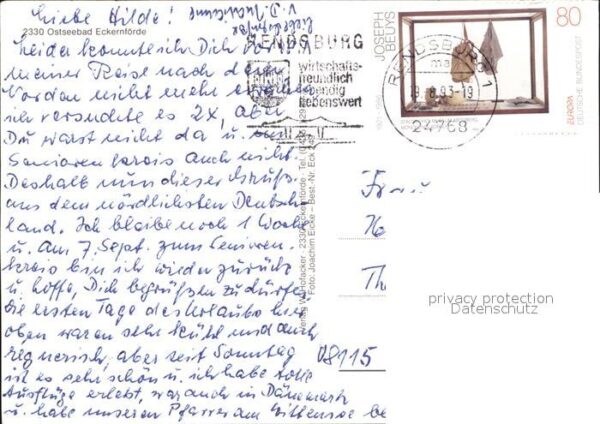 Liebe Hilde!
2330 Ostseebad Eckernförde
leider konnte ich Dich vor
meiner Reise nach dem
Norden nicht mehr
ich versuchte es 2x, aber
Du warst nicht da u. im
Seniorenkreis auch nicht.
Deshalb nun dieser Gruß
aus dem nördlichsten Deutsch-
land. Ich bleibe noch 1 Woche
u. am 7. Sept. zum Senioren-
kreis bin ich wieder zurück
u. hoffe, Dich begrüßen zu dürfen,
die ersten Tage des Urlaubs hier
oben waren sehr kühl und auch
regnerisch, aber seit Sonntag
ist es sehr schön u. ich habe tolle
Ausflüge erlebt, war auch in Dänemark
u. habe unseren Pfarrer am Wittensee be
RENDSBURG
wirtschafts-
freundlich
lebendig
liebenswert
RENDSBURG 1
8.93-19
24768
JOSEPH
BEUYS
1921-1986
80
EUROPA
DEUTSCHE BUNDESPOST
Foto: Joachim Eicke – Best.-Nr. Eck
Frau
Th
08115
privacy protection
Datenschutz